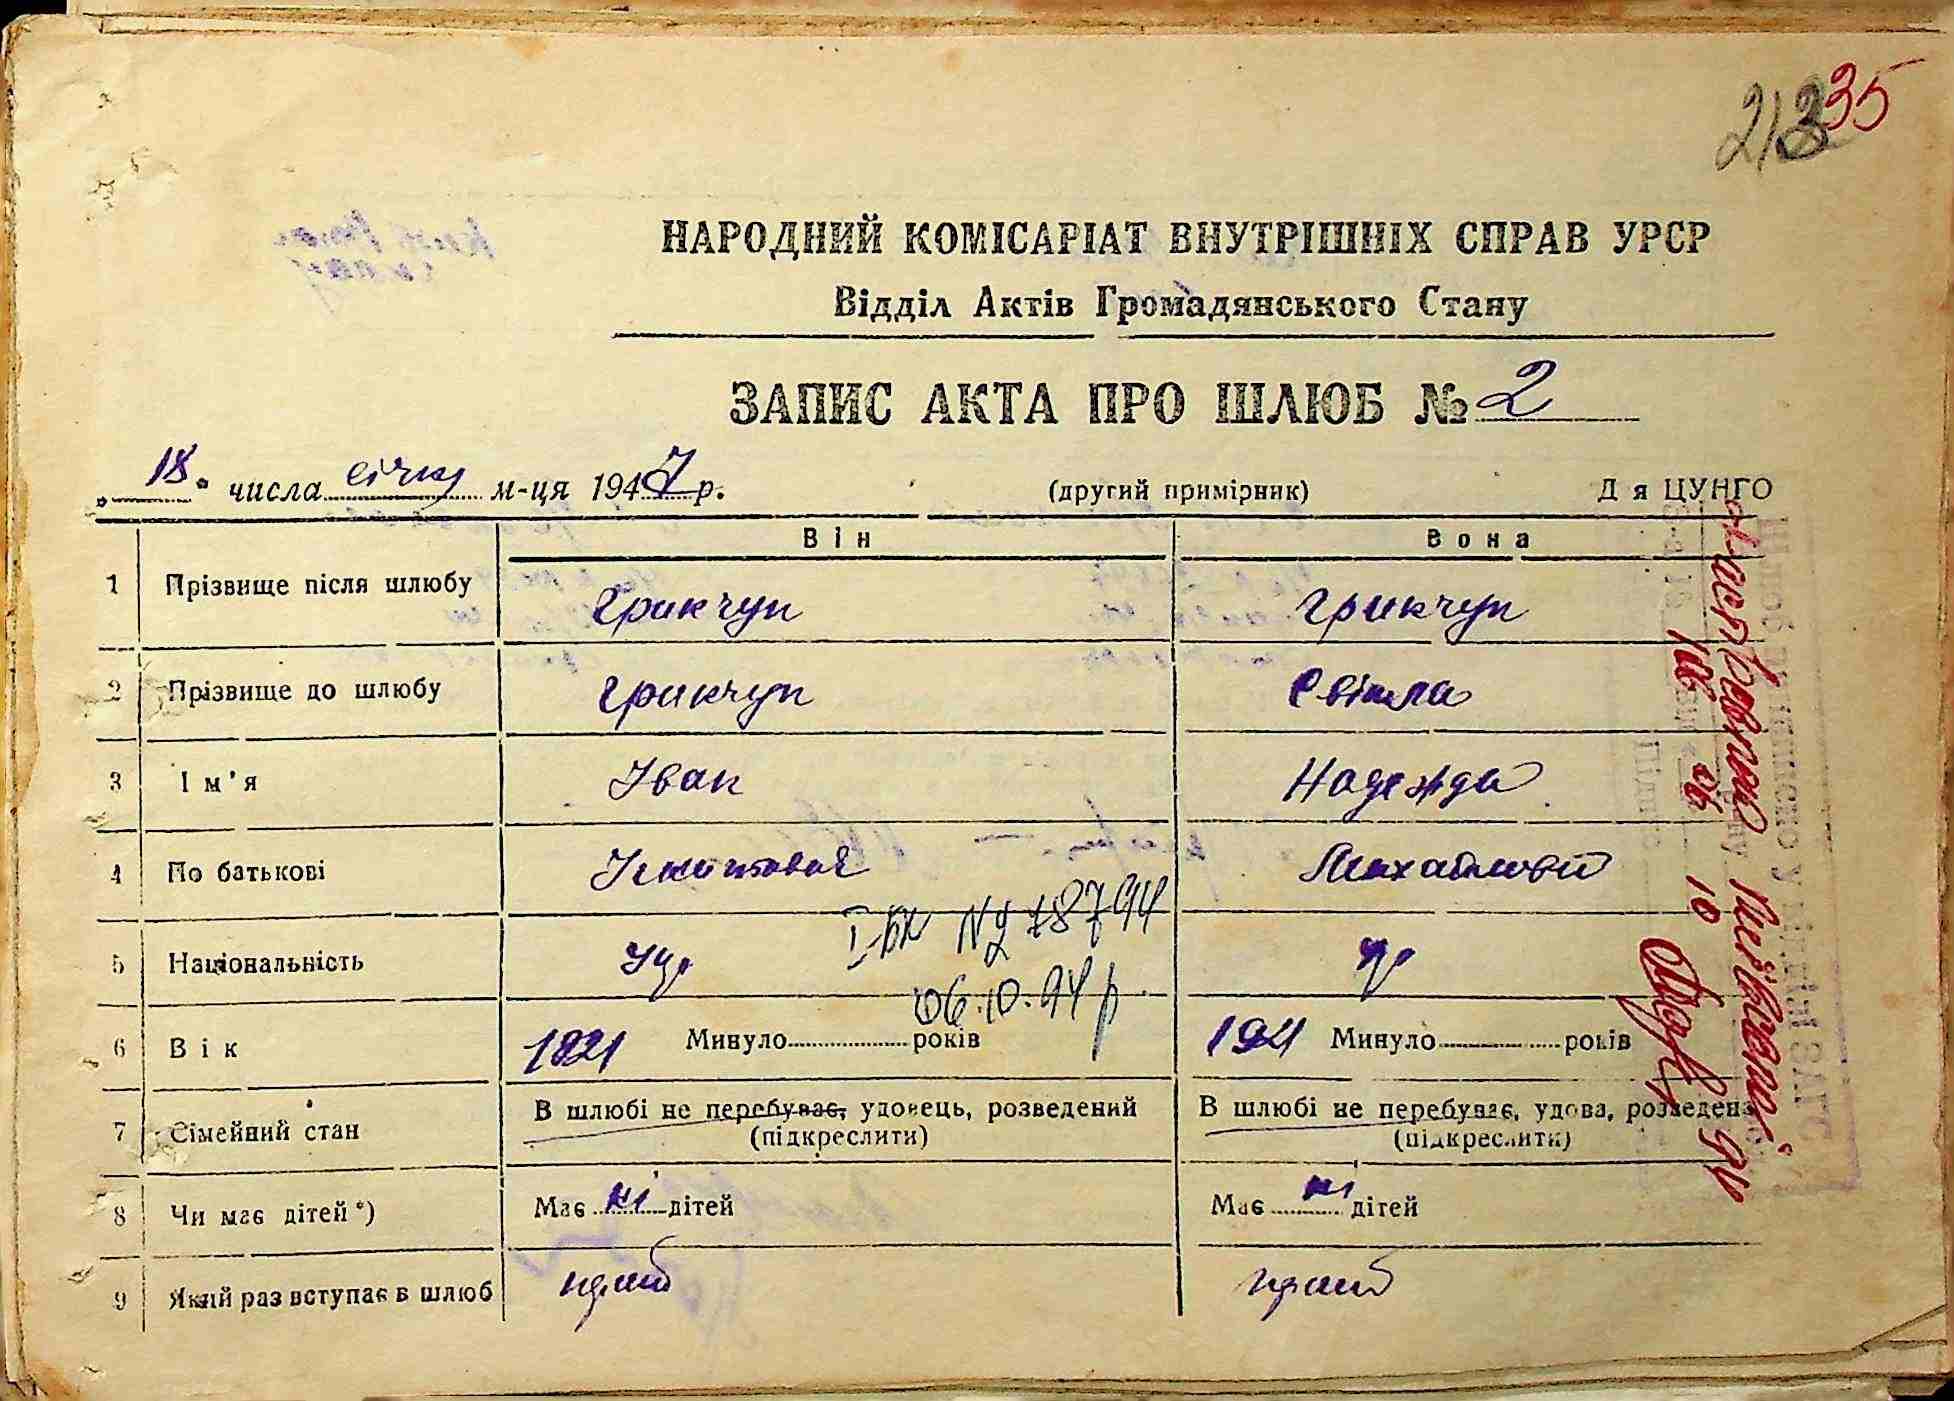 21335
НАРОДНИЙ КОМІСАРІАТ ВНУТРІШНІХ СПРАВ УРСР
Відділ Актів Громадянського Стану
ЗАПИС АКТА ПРО ШЛЮБ № 2
„ 18 " числа січня м-ця 1947 р. (другий примірник) Д я ЦУНГО
Він Вона
1 Прізвище після шлюбу Грикчуп Грикчуп
2 Прізвище до шлюбу Грикчуп Світла
3 Ім'я Іван Надежда
4 По батькові Михайловна
5 Національність Укр Ук
І-БК № 787944
06.10.94р
6 Вік 1921 Минуло років 1921 Минуло років
7 Сімейний стан В шлюбі не перебуває, удовець, розведений В шлюбі не перебуває, удова, розведена
(підкреслити) (підкреслити)
8 Чи має дітей*) Має ні дітей Має ні дітей
9 Який раз вступає в шлюб перший перший